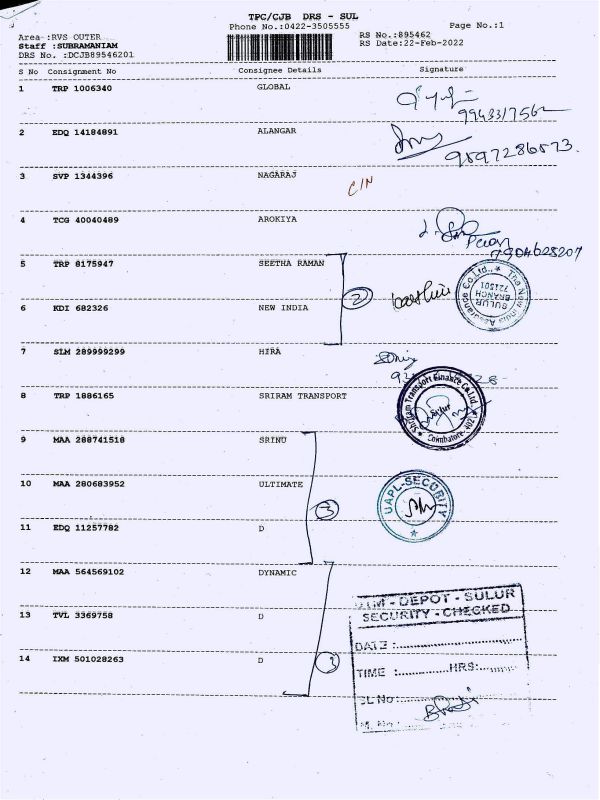 TPC/CJB DRS - SUL
Phone No.:0422-3505555 Page No.:1
Area :RVS OUTER RS No.:895462
Staff :SUBRAMANIAM RS Date:22-Feb-2022
DRS No. :DCJB89546201
S No Consignment No Consignee Details Signature
1 TRP 1006340 GLOBAL
2 EDQ 14184891 ALANGAR
9597286573.
3 SVP 1344396 NAGARAJ C/N
4 TCG 40040489 AROKIYA
7904625207
5 TRP 8175947 SEETHA RAMAN
2
The New India Assurance Co.Ltd.,
SULUR
BRANCH
721501
6 KDI 682326 NEW INDIA
7 SLM 289999299 HIRA
8 TRP 1886165 SRIRAM TRANSPORT
Shriram Transport Finance Co.Ltd.
Sulur
Coimbatore - 402
9 MAA 288741518 SRINU
10 MAA 280683952 ULTIMATE
3
UAPL-SECURITY
11 EDQ 11257782 D
12 MAA 564569102 DYNAMIC
DEPOT - SULUR
SECURITY - CHECKED
13 TVL 3369758 D
DATE :
14 IXM 501028263 D
3
TIME : HRS:
SL No :
M. No :